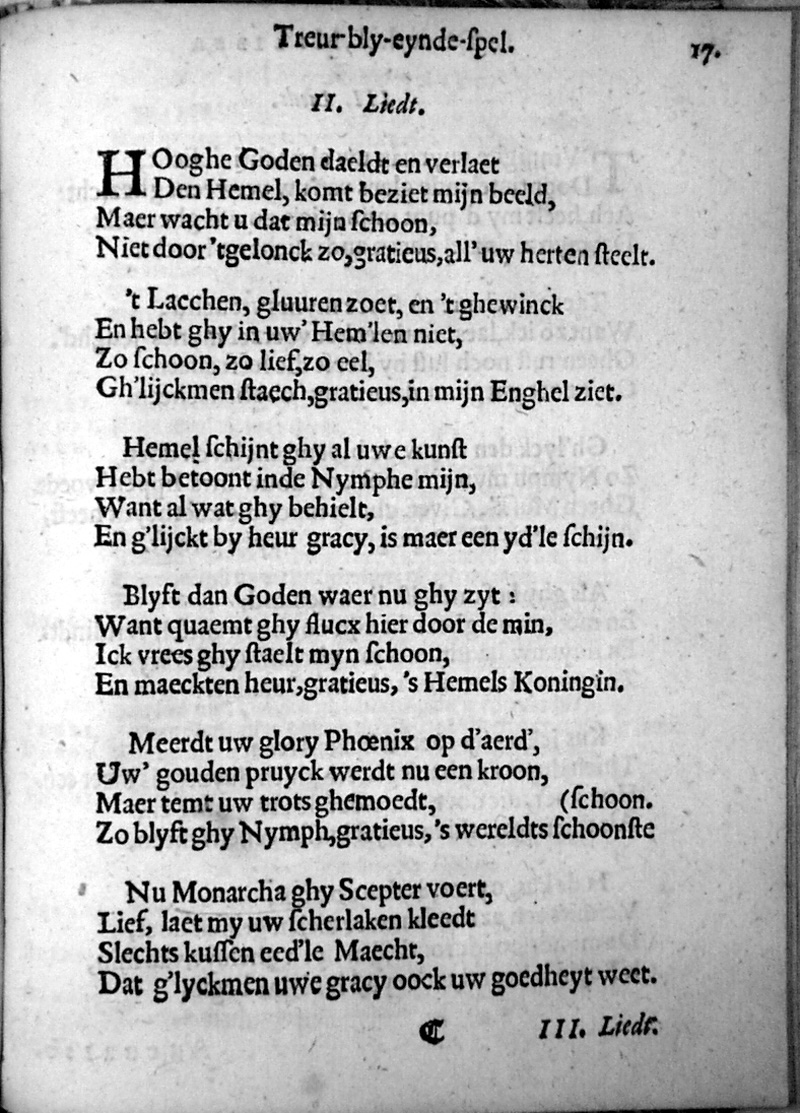 Treur-bly-eynde-ſpel.
17.
II. Liedt.
HOoghe Goden daeldt en verlaet
Den Hemel, komt beziet mijn beeld,
Maer wacht u dat mijn ſchoon,
Niet door 'tgelonck zo,gratieus,all' uw herten ſteelt.
't Lacchen, gluuren zoet, en 't ghewinck
En hebt ghy in uw' Hem'len niet,
Zo ſchoon, zo lief,zo eel,
Gh'lijckmen ſtaech,gratieus,in mijn Enghel ziet.
Hemel ſchijnt ghy al uwe kunſt
Hebt betoont inde Nymphe mijn,
Want al wat ghy behielt,
En g'lijckt by heur gracy, is maer een yd'le ſchijn.
Blyft dan Goden waer nu ghy zyt :
Want quaemt ghy flucx hier door de min,
Ick vrees ghy ſtaelt myn ſchoon,
En maeckten heur,gratieus, 's Hemels Koningin.
Meerdt uw glory Phœnix op d'aerd',
Uw' gouden pruyck werdt nu een kroon,
Maer temt uw trots ghemoedt, (ſchoon.
Zo blyft ghy Nymph,gratieus, 's wereldts ſchoonſte
Nu Monarcha ghy Scepter voert,
Lief, laet my uw ſcherlaken kleedt
Slechts kuſſen eed'le Maecht,
Dat g'lyckmen uwe gracy oock uw goedheyt weet.
C III. Liedt.